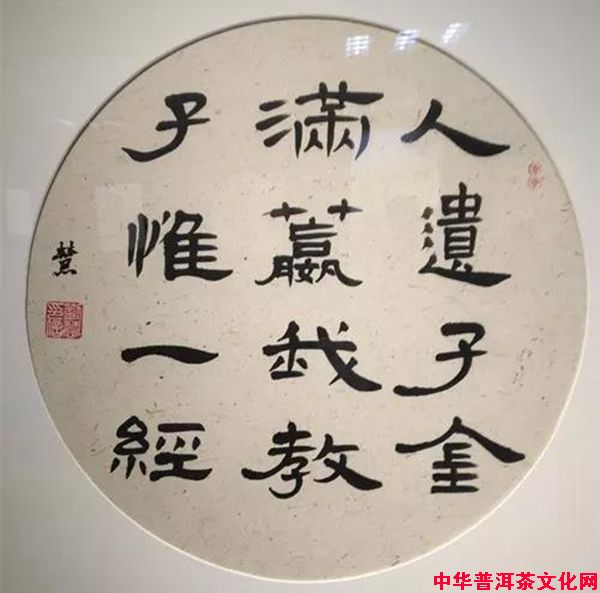 人遺子金
滿籝我教
子惟一經
中华普洱茶文化网